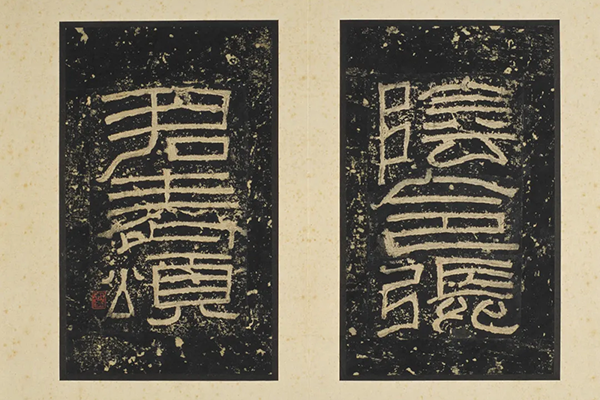 陰令張
君表頌